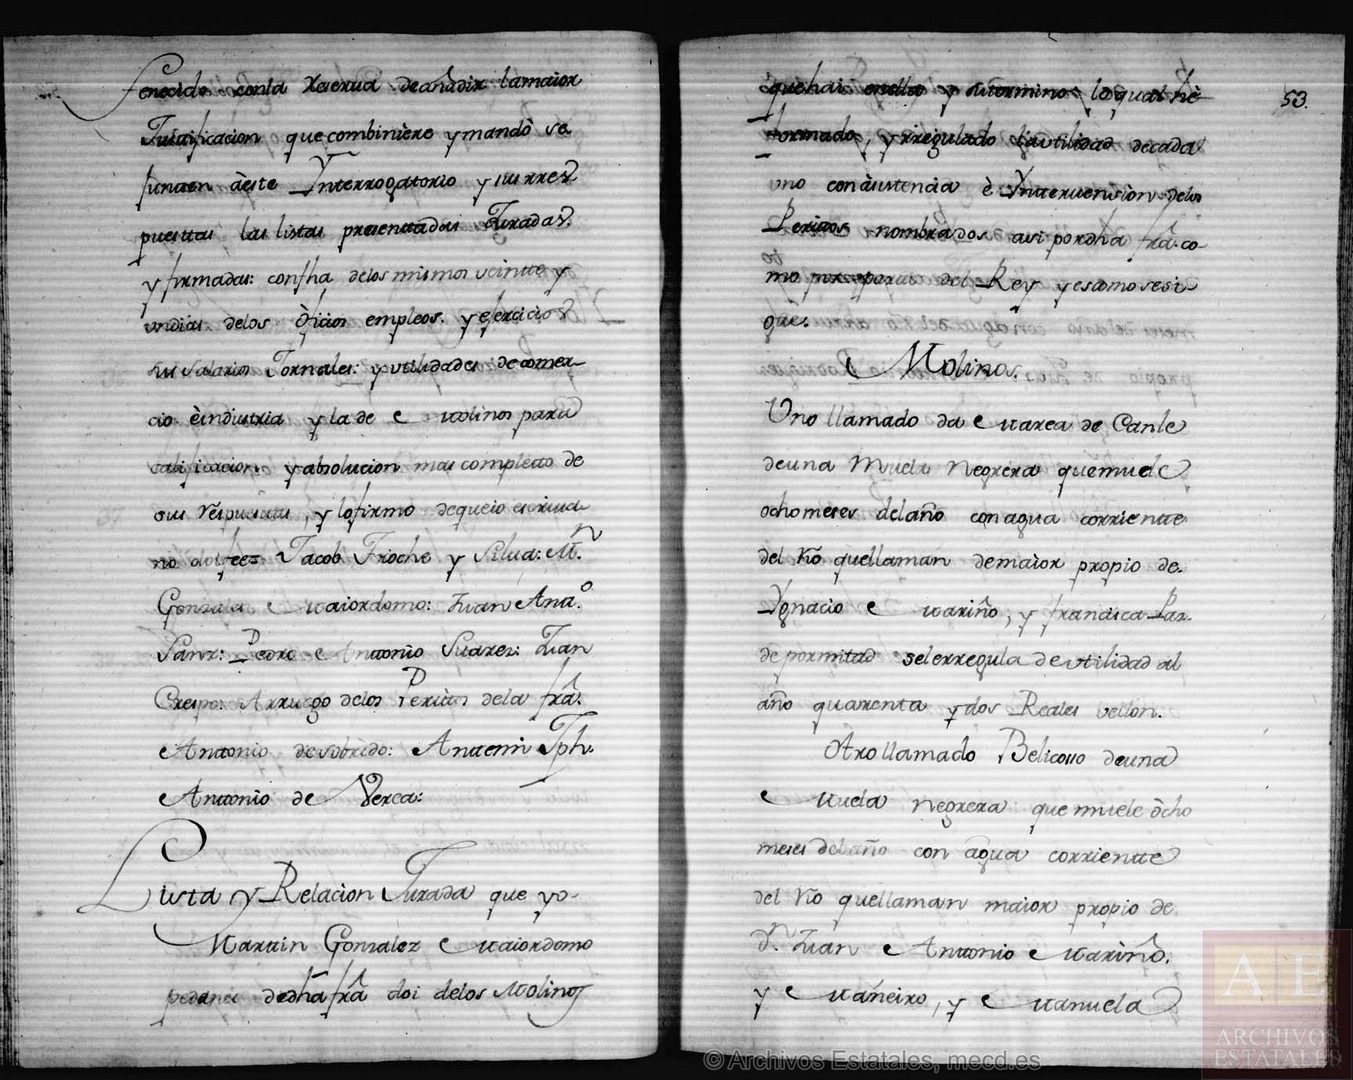 fenecido conla Reserua deañadir lamaior
Justificacion quecombiniere ymandò se
junten àeste Ynterrogatorio y sus rres
puestas las listas presentadas Juradas
y firmadas: confha delos mismos veintte y
undias delos òficios empleos. y ejercicios
sus salarios Jornales: y utilidades decomer-
cio èindustria y la de Molinos para
calificacion, y absolucion mas completto de
sus respuestas, y lofirmo dequeio escriua-
no doi fee= Jacob Troche y Silua: Mn.
Gonzalez Maiordomo: Juan Antº.
Sanz: Pedro Antonio Suarez: Juan
Crespo: Arruego delos Peritos dela frâ.
Antonio desobrido: Antemi Jph.
Antonio de Verea:
Lista y Relacion Jurada que yo-
Martin Gonzalez Maiordomo
pedaneo dedha frâ doi delos Molinos
53.
quehai enella y sutermino, loqual hè
formado, y rregulado lautilidad decada
uno conàsistencia è Ynteruension delos
Peritos nombrados asi pordha frâ. co-
mo por parte del Rey y escomo sesi
gue:
Molinos.
Uno llamado da Marea de Canle
deuna Muela Negrera quemuele
ocho meses del año con agua corriente
del Rio quellaman demaior propio de.
Ygnacio Mariño, y francisca Par.
de pormitad selerregula de utilidad al
año quarenta y dos Reales vellon.
Otro llamado Belicoso deuna
Muela negrera que muele òcho
meses del año con agua corrientte
del Rio quellaman maior propio de
Dn. Juan Antonio Mariño.
y Maneiro, y Manuela
AE
ARCHIVOS
ESTATALES
© Archivos Estatales, mecd.es